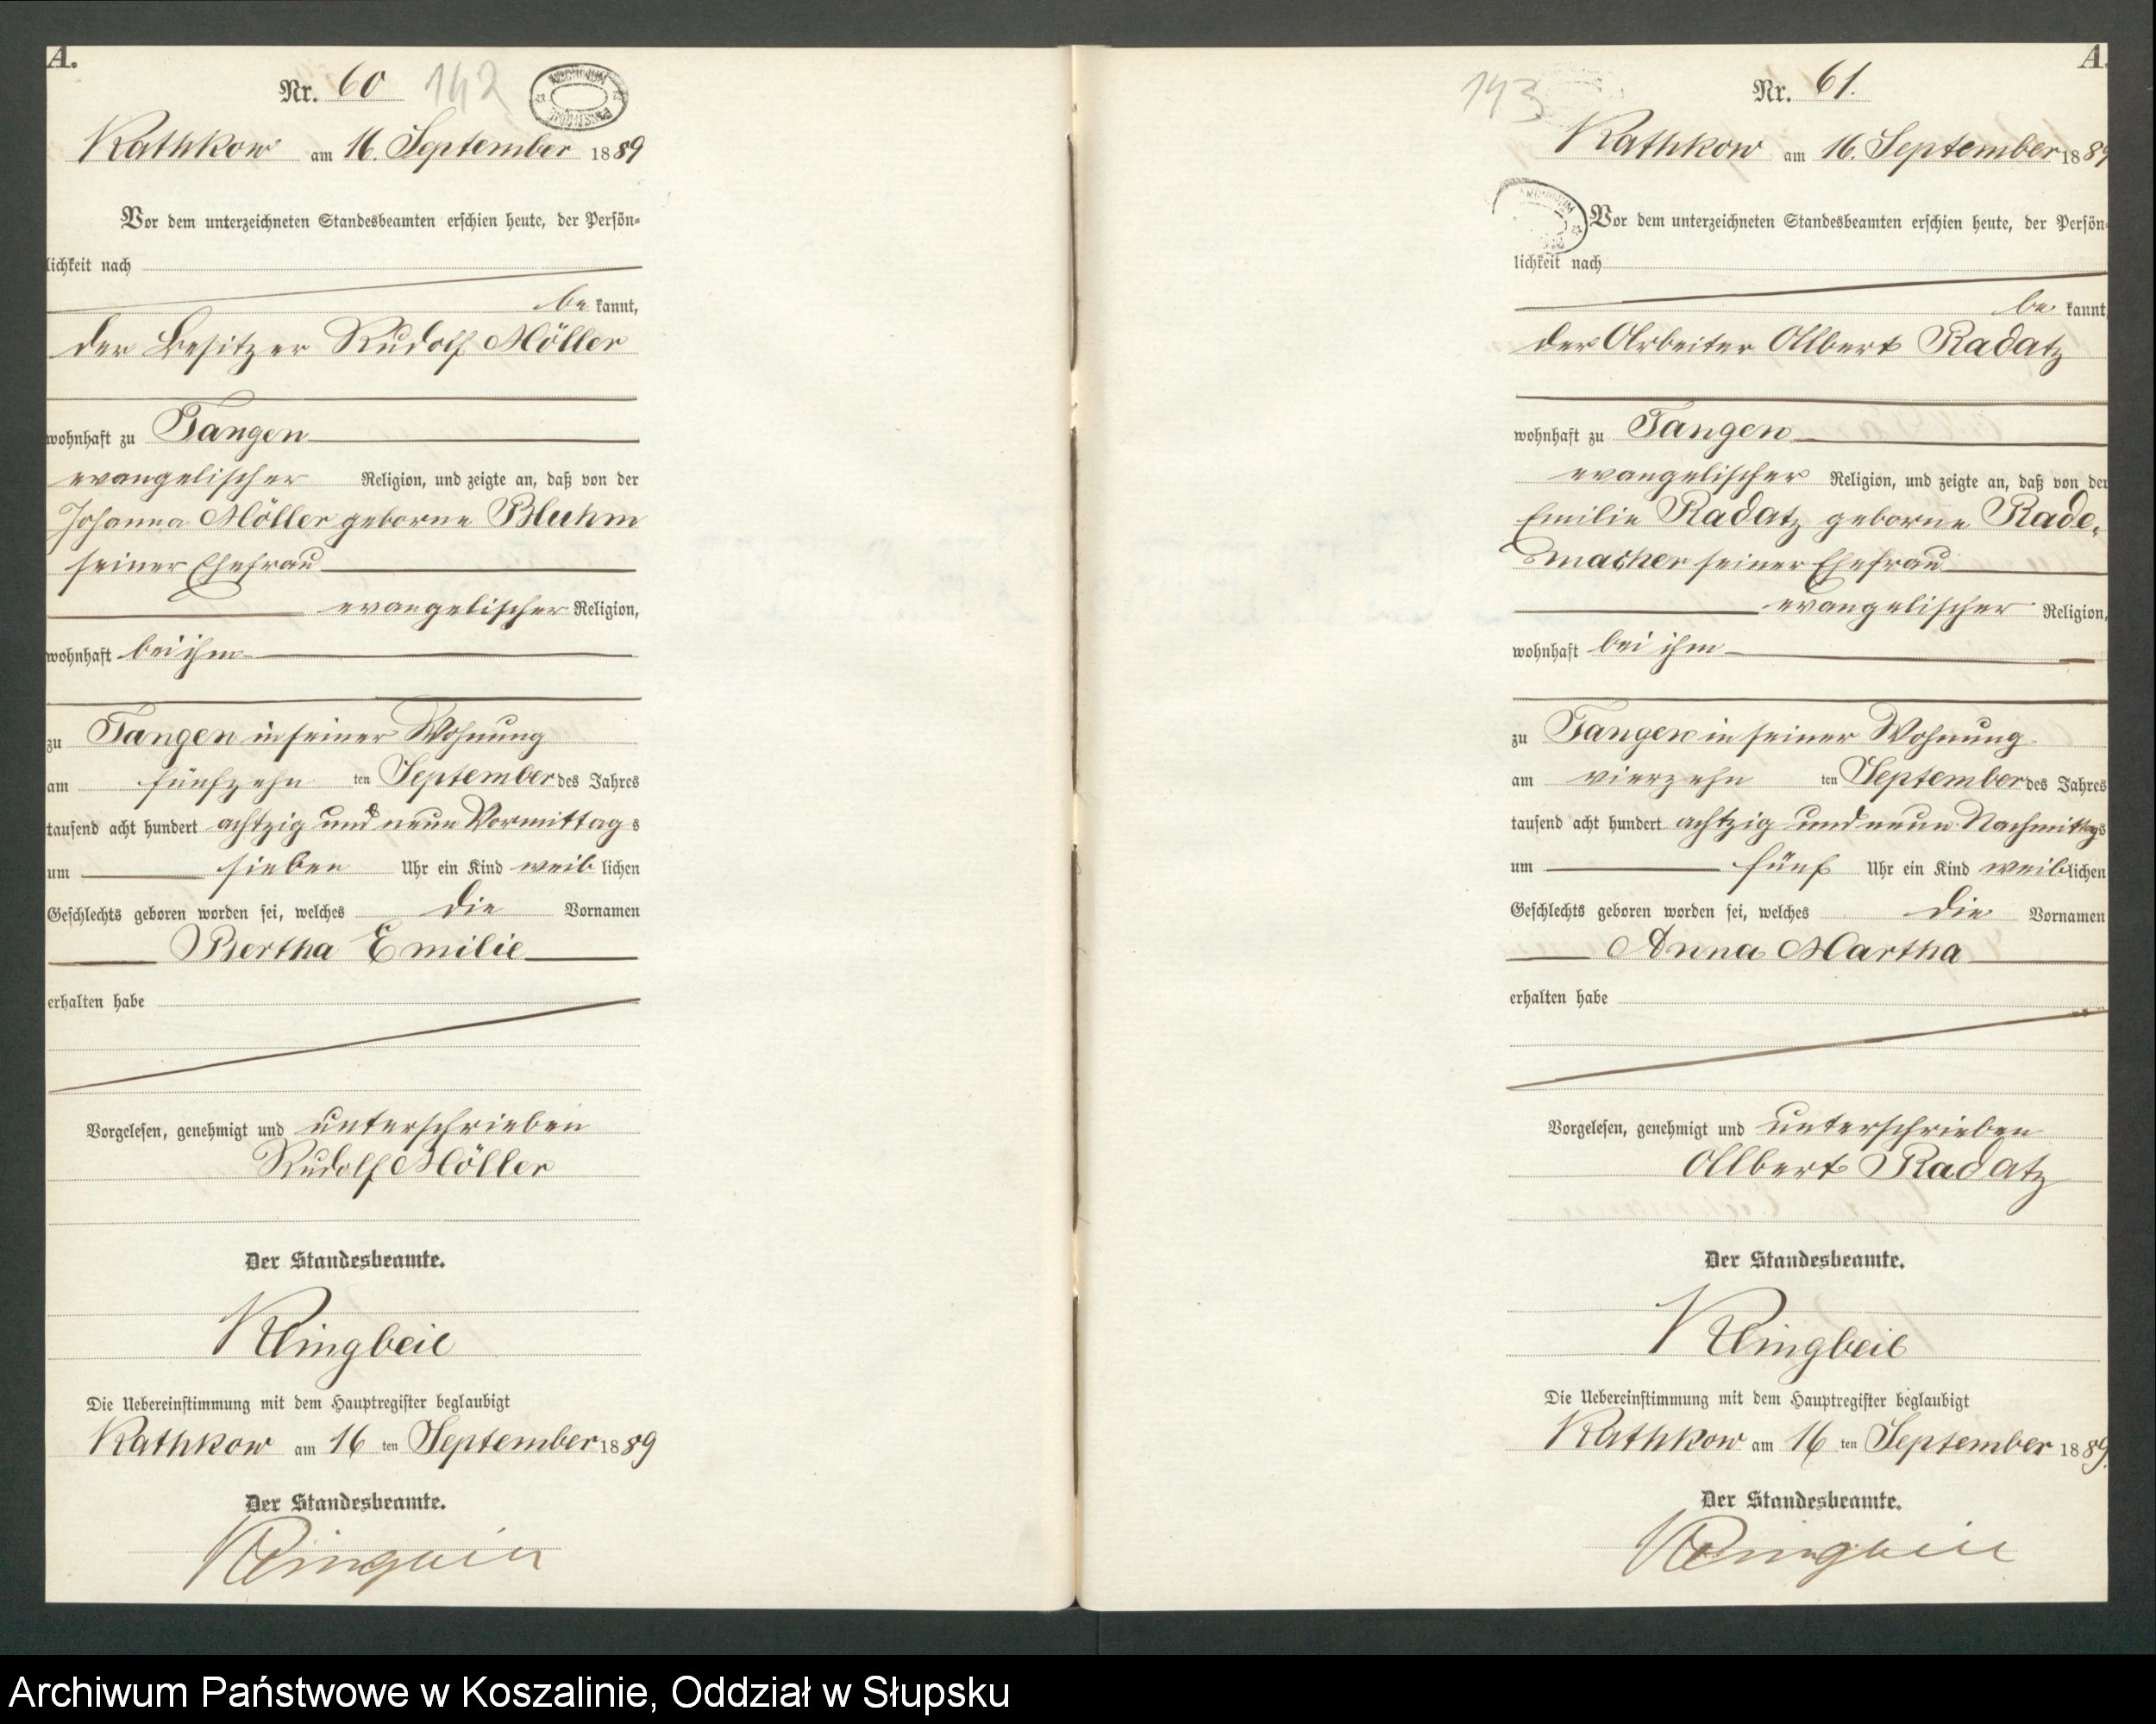 A.
Nr. 60 142
Rathkow am 16. September 1889
Vor dem unterzeichneten Standesbeamten erschien heute, der Persön=
lichkeit nach
be kannt,
der Besitzer Rudolf Möller
wohnhaft zu Tangen
evangelischer Religion, und zeigte an, daß von der
Johanna Möller geborne Bluhm
seiner Ehefrau
evangelischer Religion,
wohnhaft bei ihm
zu Tangen in seiner Wohnung
am fünfzehn ten September des Jahres
tausend acht hundert achtzig und neun Vormittags
um sieben Uhr ein Kind weib lichen
Geschlechts geboren worden sei, welches die Vornamen
Bertha Emilie
erhalten habe
Vorgelesen, genehmigt und unterschrieben
Rudolf Möller
Der Standesbeamte.
Klingbeil
Die Uebereinstimmung mit dem Hauptregister beglaubigt
Rathkow am 16 ten September 1889
Der Standesbeamte.
Klingbeil
A.
143 Nr. 61.
Rathkow am 16. September 1889
Vor dem unterzeichneten Standesbeamten erschien heute, der Persön=
lichkeit nach
be kannt,
der Arbeiter Albert Radatz
wohnhaft zu Tangen
evangelischer Religion, und zeigte an, daß von der
Emilie Radatz geborne Rade=
macher seiner Ehefrau
evangelischer Religion,
wohnhaft bei ihm
zu Tangen in seiner Wohnung
am vierzehn ten September des Jahres
tausend acht hundert achtzig und neun Nachmittags
um fünf Uhr ein Kind weiblichen
Geschlechts geboren worden sei, welches die Vornamen
Anna Martha
erhalten habe
Vorgelesen, genehmigt und unterschrieben
Albert Radatz
Der Standesbeamte.
Klingbeil
Die Uebereinstimmung mit dem Hauptregister beglaubigt
Rathkow am 16 ten September 1889.
Der Standesbeamte.
Klingbeil
Archiwum Państwowe w Koszalinie, Oddział w Słupsku